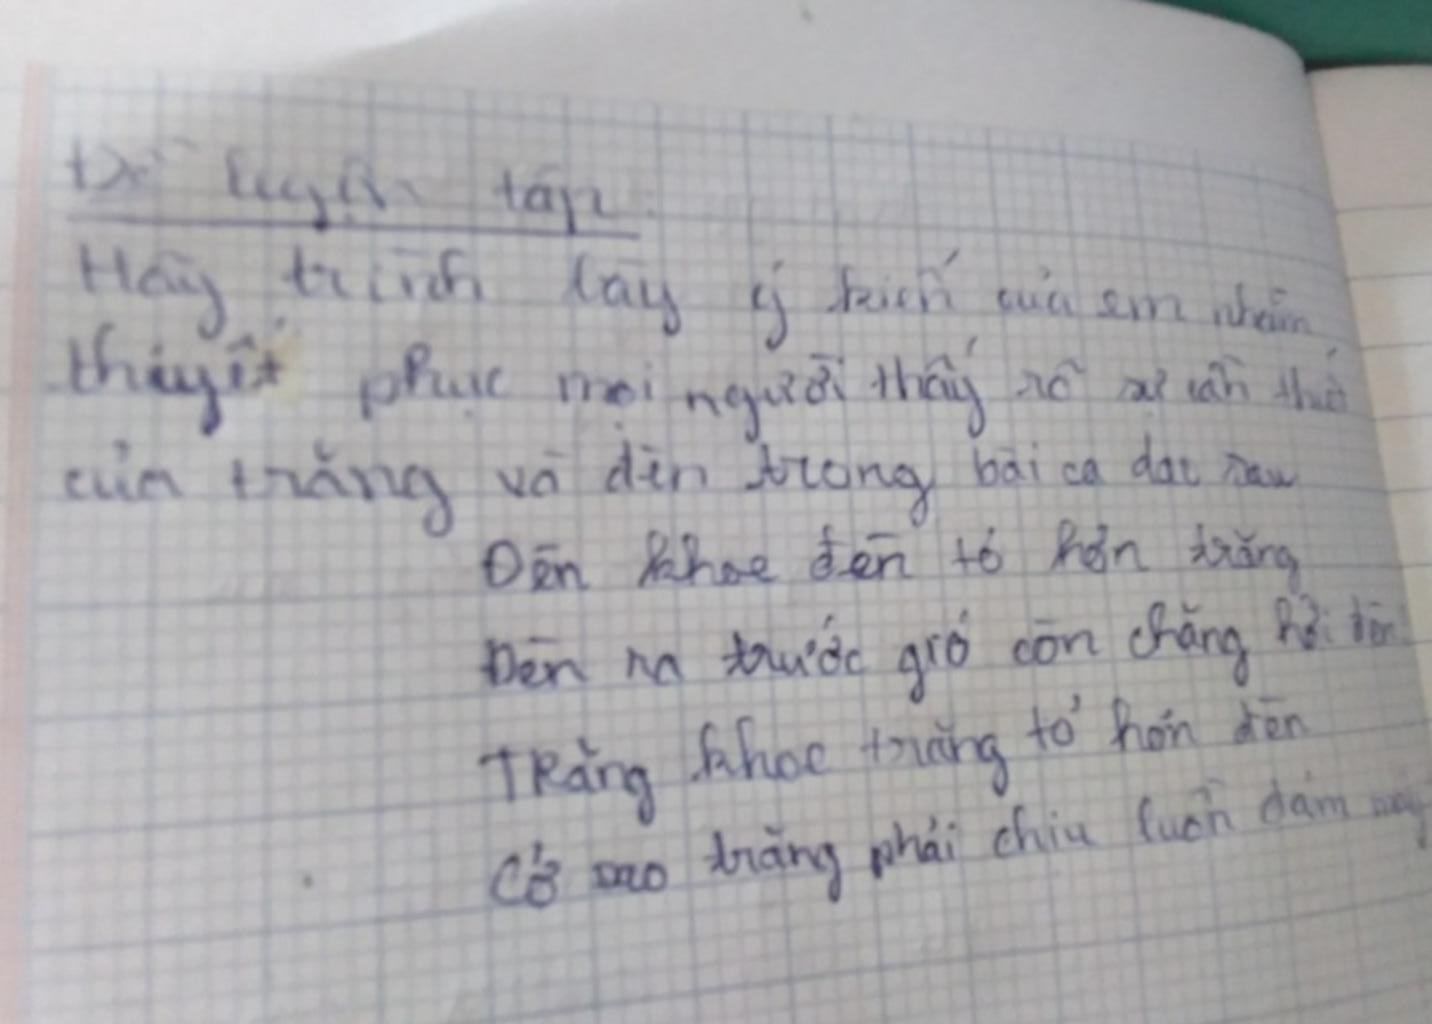 Đề luyện tập
Hãy trình bày ý kiến của em nhằm
thuyết phục mọi người thấy rõ sự cần thiết
của trăng và đèn trong bài ca dao sau
Đèn khoe đèn tỏ hơn trăng
Đèn ra trước gió còn chăng hỡi đèn
TRăng khoe trăng tỏ hơn đèn
Cớ sao trăng phải chịu luồn đám mây